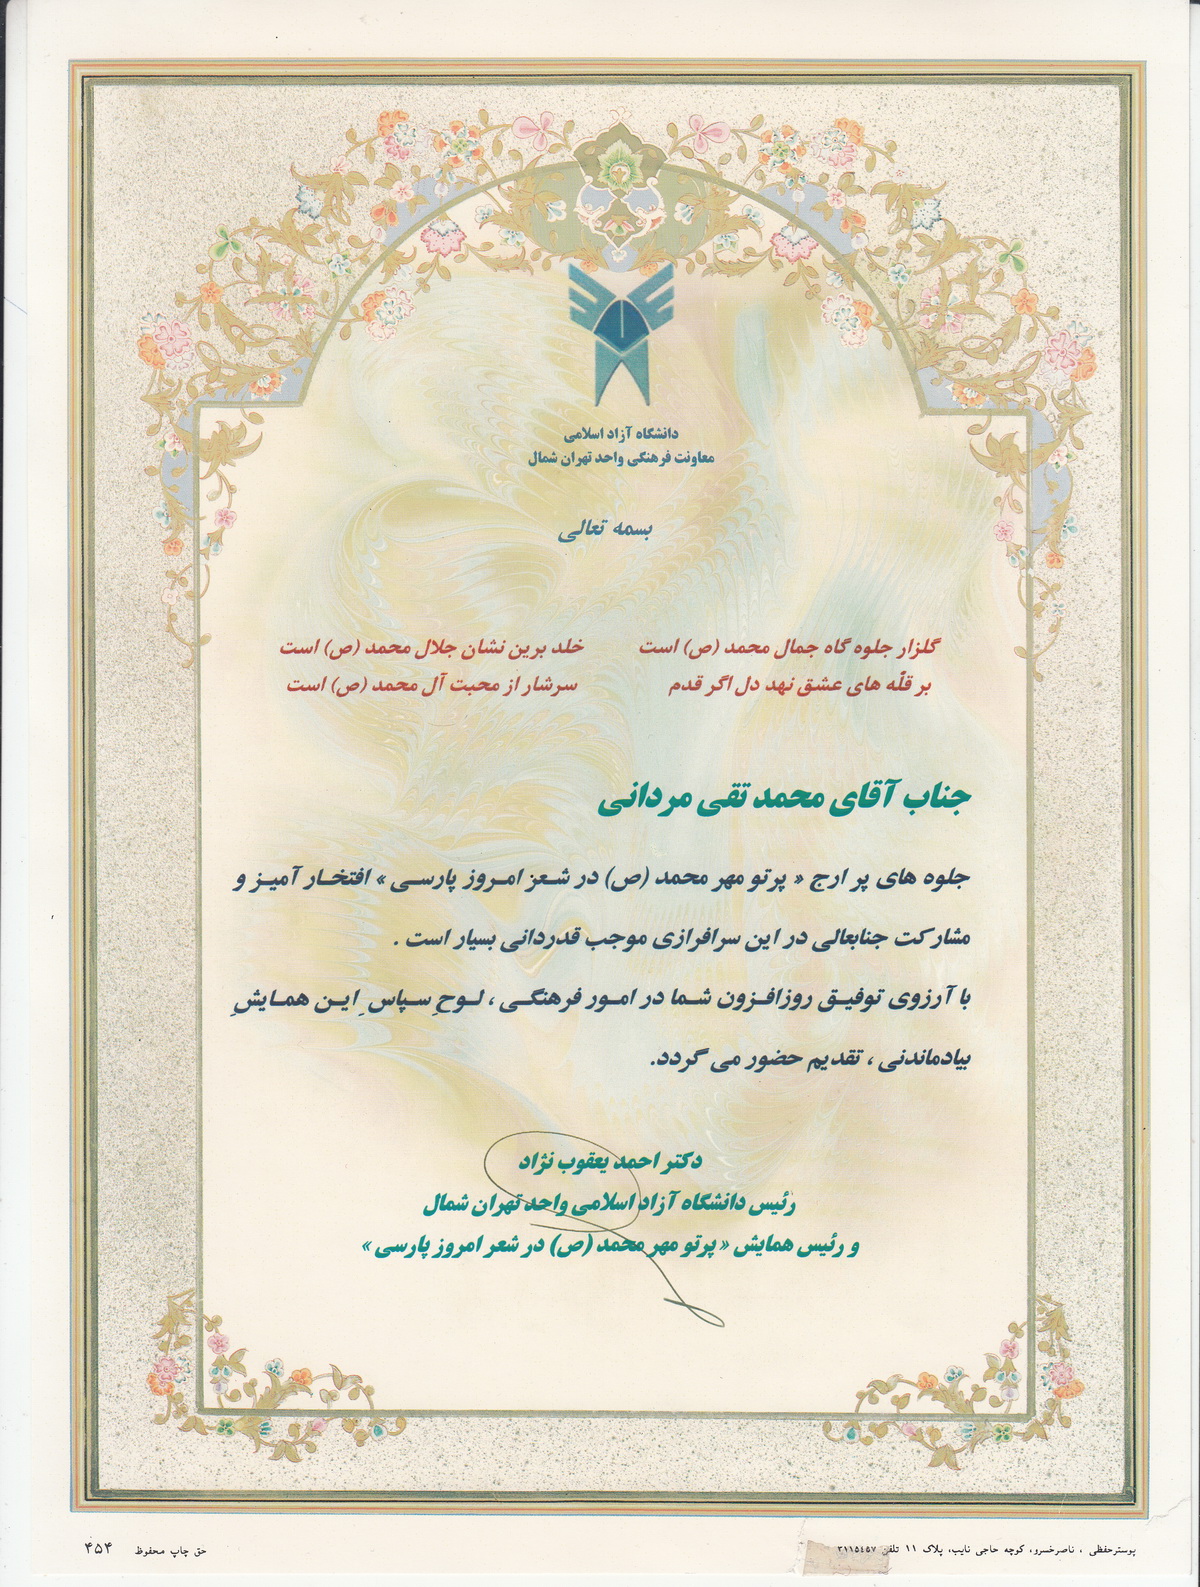 دانشگاه آزاد اسلامی
معاونت فرهنگی واحد تهران شمال
بسمه تعالی
گلزار جلوه گاه جمال محمد (ص) است خلد برین نشان جلال محمد (ص) است
بر قلّه های عشق نهد دل اگر قدم سرشار از محبت آل محمد (ص) است
جناب آقای محمد تقی مردانی
جلوه های پر ارج « پرتو مهر محمد (ص) در شعز امروز پارسی » افتخار آمیز و
مشارکت جنابعالی در این سرافرازی موجب قدردانی بسیار است .
با آرزوی توفیق روزافزون شما در امور فرهنگی ، لوحِ سپاسِ این همایشِ
بیادماندنی ، تقدیم حضور می گردد.
دکتر احمد یعقوب نژاد
رئیس دانشگاه آزاد اسلامی واحد تهران شمال
و رئیس همایش « پرتو مهر محمد (ص) در شعر امروز پارسی »
پوسترحفظی ، ناصرخسرو، کوچه حاجی نایب، پلاک ۱۱ تلفن ۳۱۱۵۴۵۷ حق چاپ محفوظ ۴۵۴